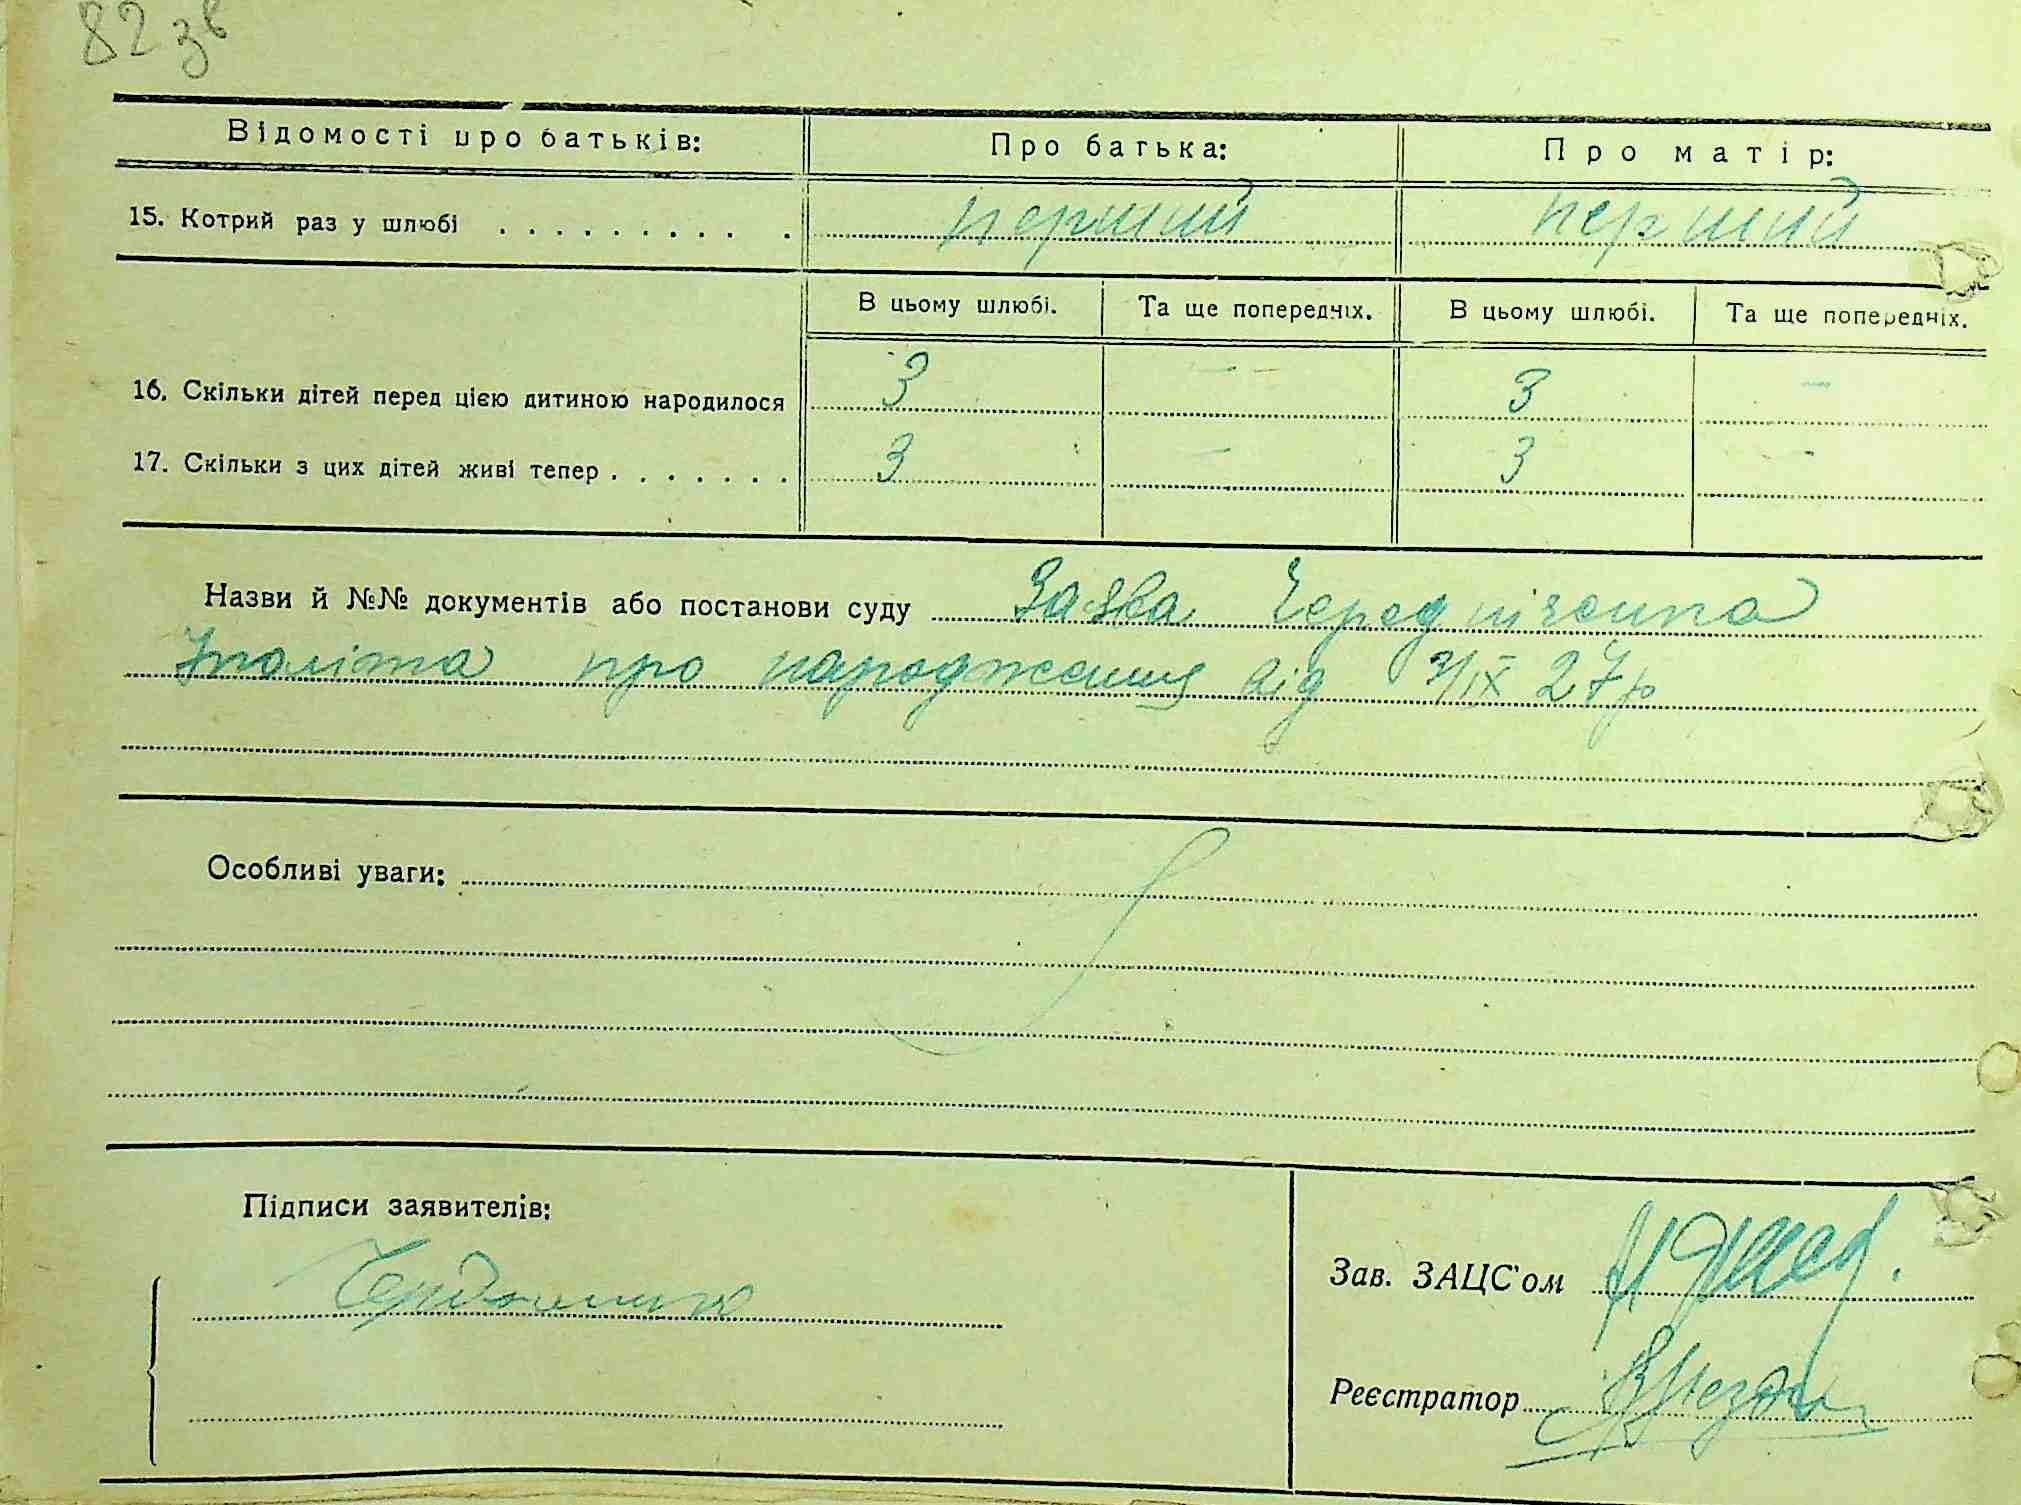 82 зв
Відомості про батьків: Про батька: Про матір:
15. Котрий раз у шлюбі . . . . . . . . . . . перший перший
В цьому шлюбі. Та ще попередніх. В цьому шлюбі. Та ще попередніх.
16. Скільки дітей перед цією дитиною народилося 3 — 3 —
17. Скільки з цих дітей живі тепер . . . . . . . 3 — 3 —
Назви й №№ документів або постанови суду Заява Чередніченка
Іполіта про народження від 3/IX 27р
Особливі уваги:
Підписи заявителів:
Зав. ЗАЦС'ом
Реєстратор